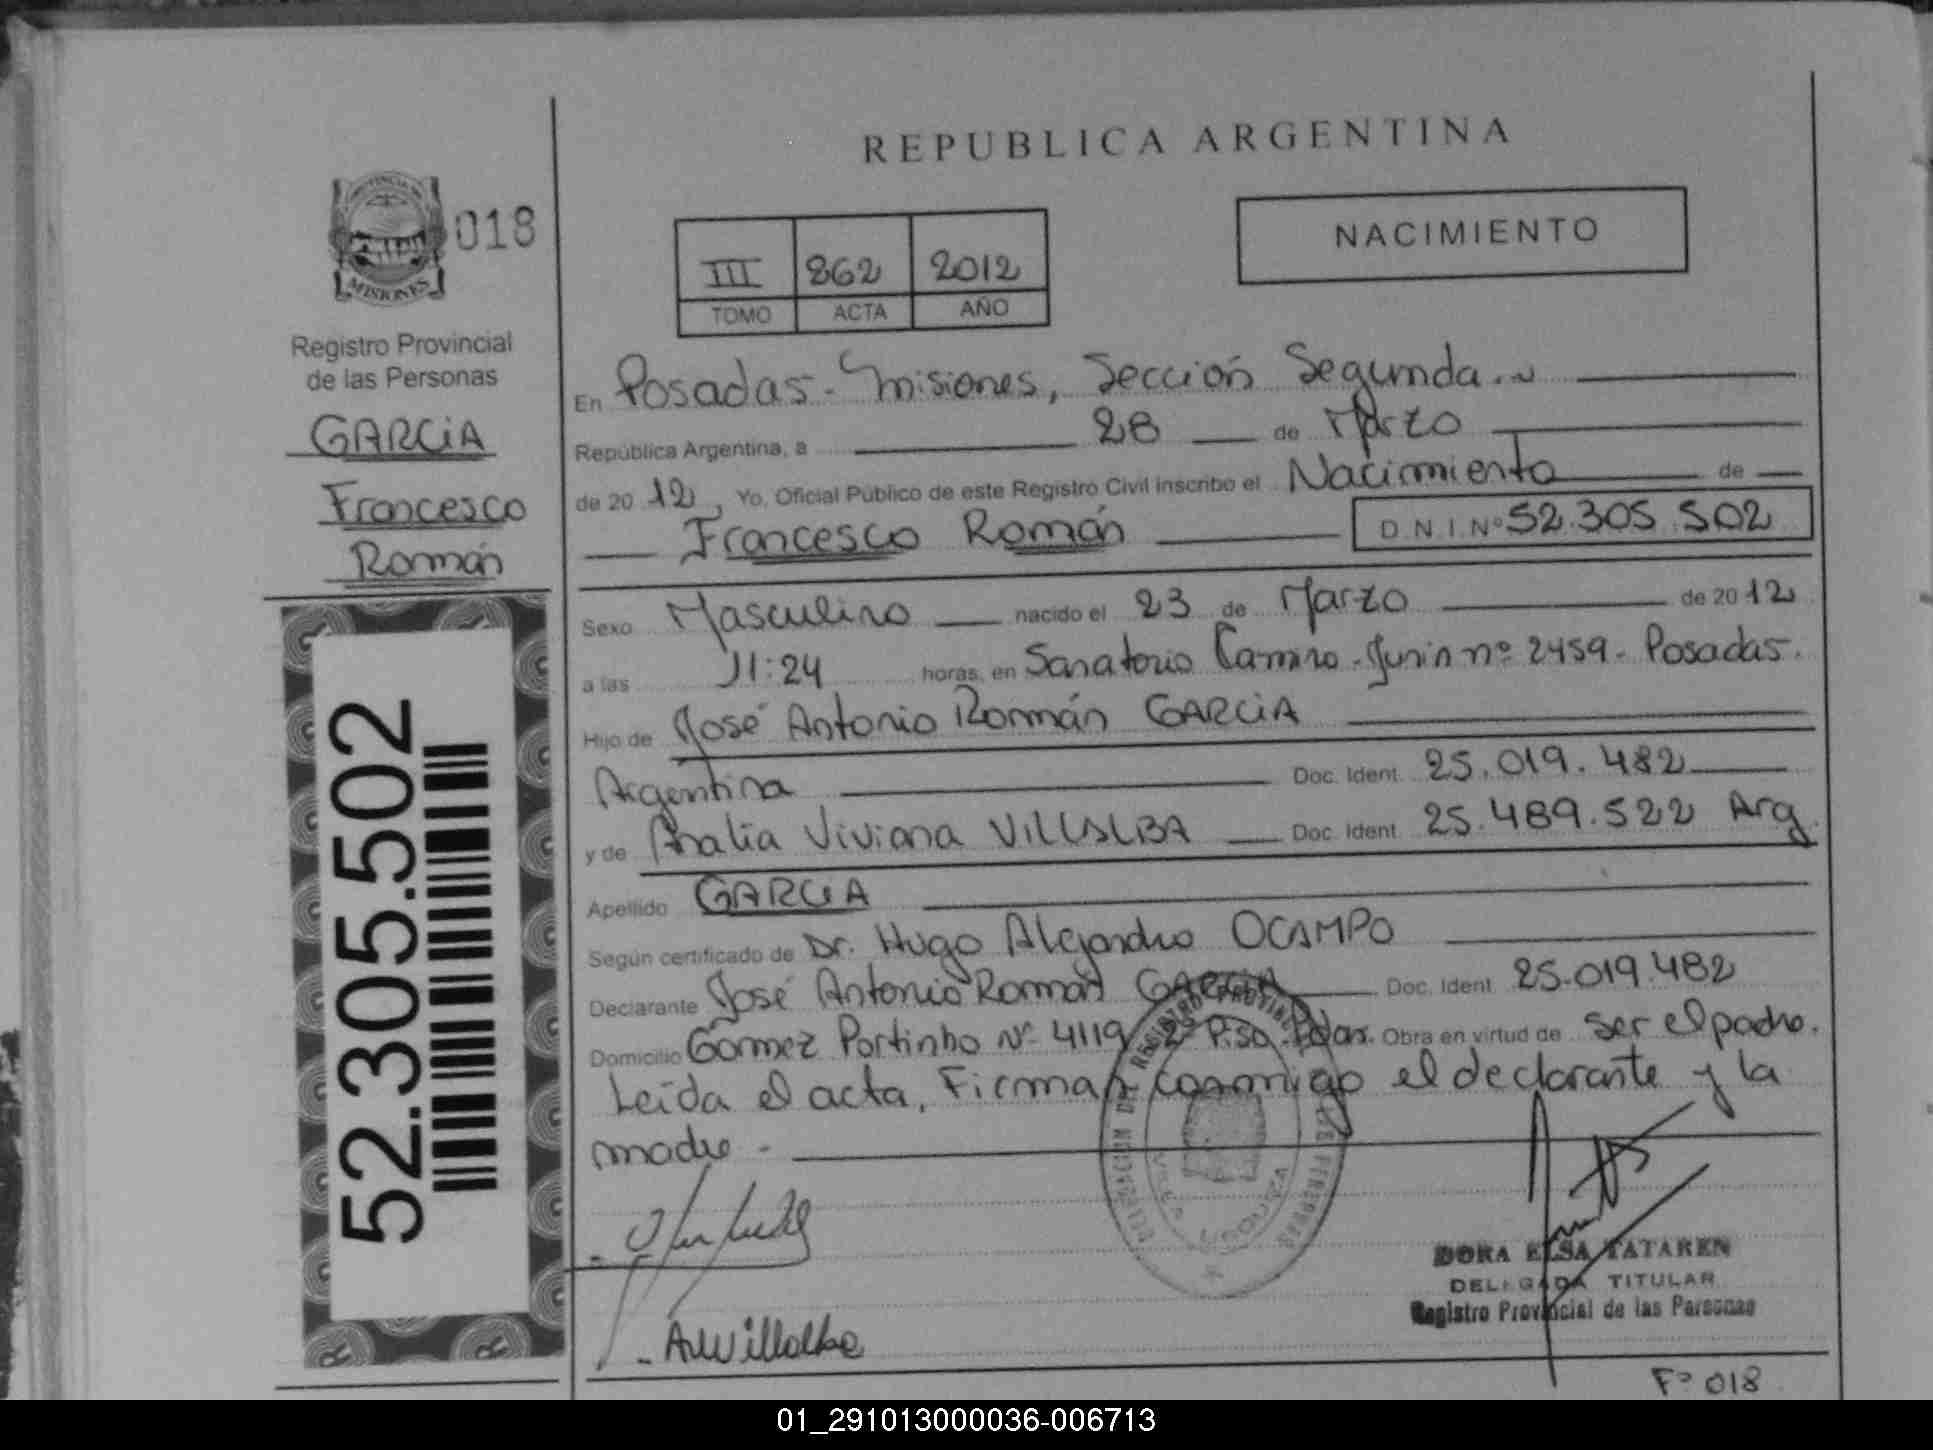 REPUBLICA ARGENTINA
NACIMIENTO
PROVINCIA DE
MISIONES
018
Registro Provincial
de las Personas
GARCIA
Francesco
Román
52.305.502
III 862 2012
TOMO ACTA AÑO
En Posadas - Misiones, Sección Segunda.
República Argentina, a 28 de Marzo
de 2012, Yo, Oficial Público de este Registro Civil inscribo el Nacimiento de
Francesco Román D.N.I.Nº 52.305.502
Sexo Masculino nacido el 23 de Marzo de 2012
a las 11:24 horas, en Sanatorio Camino - Junín nº 2459 - Posadas.
Hijo de José Antonio Román GARCIA
Argentina Doc. Ident. 25.019.482
y de Analía Viviana VILLALBA Doc. Ident. 25.489.522 Arg.
Apellido GARCIA
Según certificado de Dr. Hugo Alejandro OCAMPO
Declarante José Antonio Román GARCIA Doc. Ident. 25.019.482
Domicilio Gómez Portinho Nº 4119 2º Piso. Pdas. Obra en virtud de ser el padre.
Leída el acta, Firman conmigo el declarante y la
madre -
DORA ELSA TATAREN
DELEGADA TITULAR
Registro Provincial de las Personas
AVVillalba
Fº 018
01_291013000036-006713